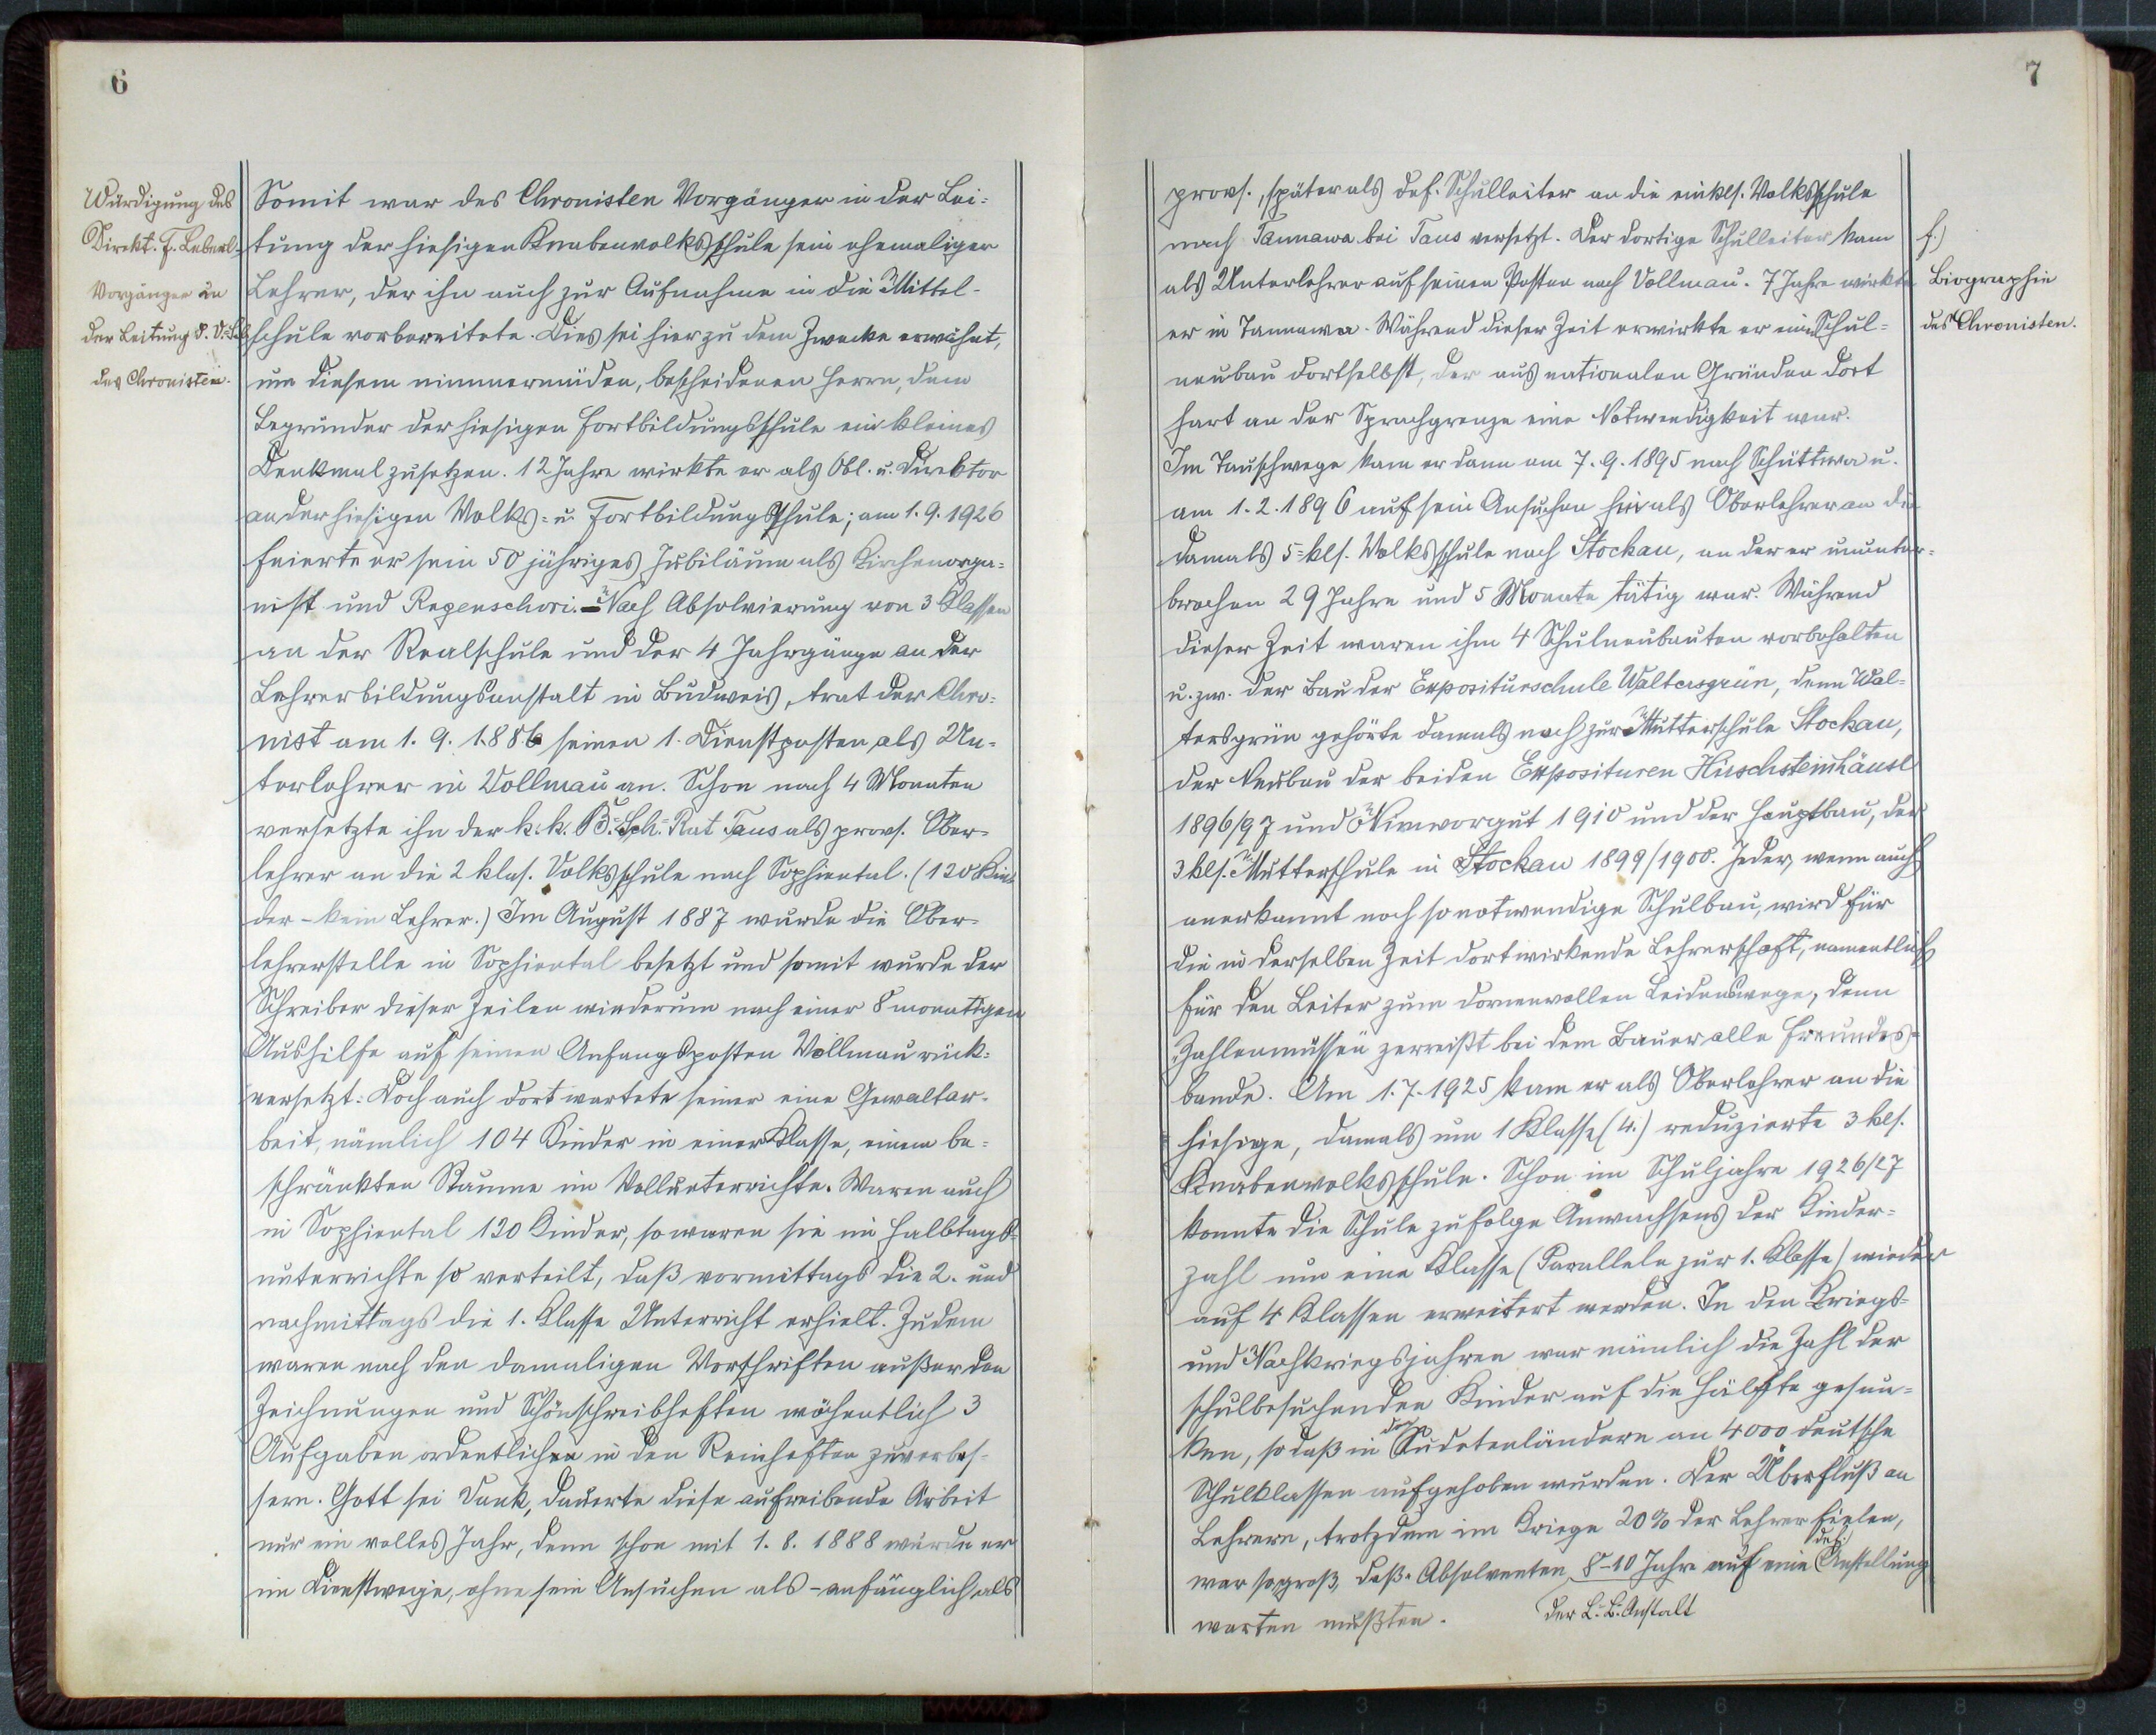 6
Würdigung des
Direkt. F. Leberl
Vorgänger in
der Leitung d. V.-Sch.
des Chronisten.
Somit war des Chronisten Vorgänger in der Lei-
tung der hiesigen Knabenvolksschule sein ehemaliger
Lehrer, der ihn auch zur Aufnahme in die Mittel-
schule vorbereitete. Dies sei hier zu dem Zwecke erwähnt,
um diesem nimmermüden, bescheidenen Herrn, dem
Begründer der hiesigen Fortbildungsschule ein kleines
Denkmal zu setzen. 12 Jahre wirkte er als Obl. u. Direktor
an der hiesigen Volks- u. Fortbildungsschule; am 1. 9. 1926
feierte er sein 50 jähriges Jubiläum als Kirchenorga-
nist und Regenschori. – Nach Absolvierung von 3 Klassen
an der Realschule und der 4 Jahrgänge an der
Lehrerbildungsanstalt in Budweis, trat der Chro-
nist am 1. 9. 1886 seinen 1. Dienstposten als Un-
terlehrer in Vollmau an. Schon nach 4 Monaten
versetzte ihn der k. k. B.-Sch.-Rat Taus als prov. Ober-
lehrer an die 2 klas. Volksschule nach Sophiental. (120 Kin-
der – kein Lehrer.) Im August 1887 wurde die Ober-
lehrerstelle in Sophiental besetzt und somit wurde der
Schreiber dieser Zeilen wiederum nach einer 8 monatigen
Aushilfe auf seinen Anfangsposten Vollmau rück-
versetzt. Doch auch dort wartete seiner eine Gewaltar-
beit, nämlich 104 Kinder in einer Klasse, einem be-
schränkten Raume im Vollunterrichte. Waren auch
in Sophiental 120 Kinder, so waren sie im Halbtags-
unterrichte so verteilt, daß vormittags die 2. und
nachmittags die 1. Klasse Unterricht erhielt. Zudem
waren nach den damaligen Vorschriften außer den
Zeichnungen und Schönschreibheften wöchentlich 3
Aufgaben ordentlich in den Reinheften zu verbes-
sern. Gott sei Dank, dauerte diese aufreibende Arbeit
nur ein volles Jahr, denn schon mit 1. 8. 1888 wurde er
im Dienstwege, ohne sein Ansuchen als – anfänglich als
7
f.)
Biographie
des Chronisten.
prov., später als def. Schulleiter an die einkls. Volksschule
nach Tannawa bei Taus versetzt. Der dortige Schulleiter kam
als Unterlehrer auf seinen Posten nach Vollmau. 7 Jahre wirkte
er in Tannawa. Während dieser Zeit erwirkte er einen Schul-
neubau dortselbst, der aus nationalen Gründen dort
hart an der Sprachgrenze eine Notwendigkeit war.
Im Tauschwege kam er dann am 7. 9. 1895 nach Schüttwa u.
am 1. 2. 1896 auf sein Ansuchen hin als Oberlehrer an die
damals 5-kls. Volksschule nach Stockau, an der er ununter-
brochen 29 Jahre und 5 Monate tätig war. Während
dieser Zeit waren ihm 4 Schulneubauten vorbehalten
u. zw. der Bau der Expositurschule Waltersgrün, denn Wal-
tersgrün gehörte damals noch zur Mutterschule Stockau,
der Neubau der beiden Exposituren Hirschsteinhäusl
1896/97 und Nimvorgut 1910 und der Hauptbau, der
3 kls. Mutterschule in Stockau 1899/1900. Jeder, wenn auch
anerkannt noch so notwendige Schulbau, wird für
die in derselben Zeit dort wirkende Lehrerschaft, namentlich
für den Leiter zum dornenvollen Leidenswege, denn
Zahlenmüssen zerreißt bei dem Bauer alle Freundes-
bande. Am 1. 7. 1925 kam er als Oberlehrer an die
hiesige, damals um 1 Klasse (4.) reduzierte 3 kls.
Knabenvolksschule. Schon im Schuljahre 1926/27
konnte die Schule zufolge Anwachsens der Kinder-
zahl um eine Klasse (Parallele zur 1. Klasse) wieder
auf 4 Klassen erweitert werden. In den Kriegs-
und Nachkriegsjahren war nämlich die Zahl der
schulbesuchenden Kinder auf die Hälfte gesun-
ken, so daß in den Sudetenländern an 4000 deutsche
Schulklassen aufgehoben wurden. Der Überfluß an
Lehrern, trotzdem im Kriege 20% der Lehrer fielen,
war so groß, daß Absolventen 8–10 Jahre auf eine def. Anstellung
der L.-B.-Anstalt
warten mußten.